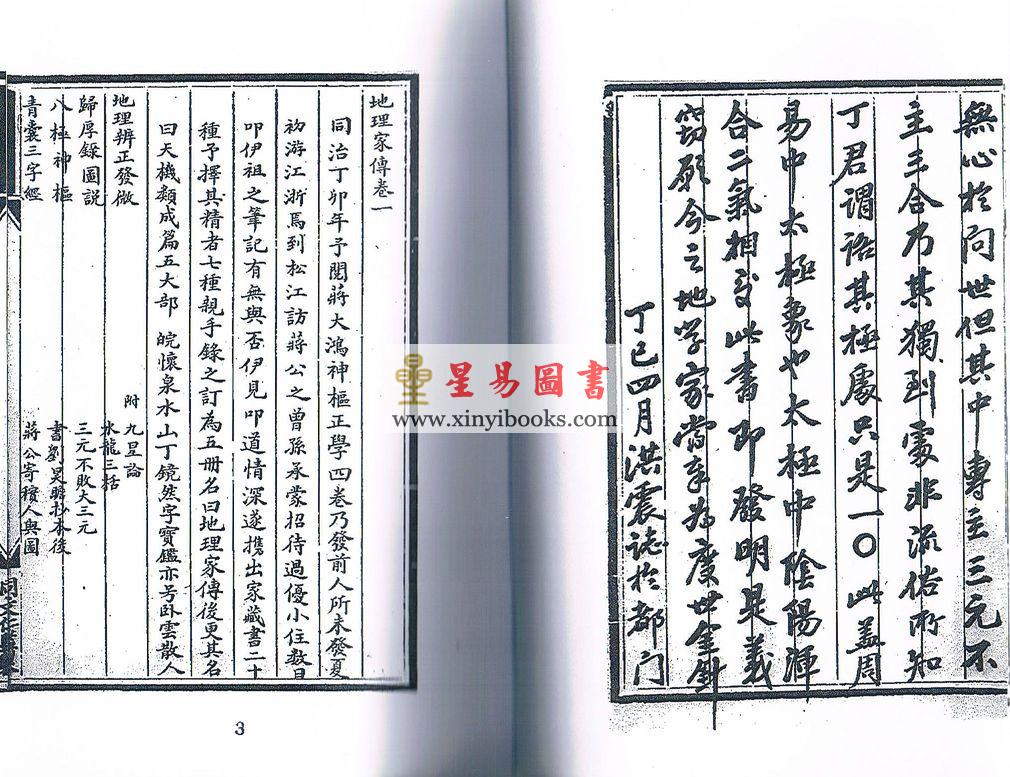 無心於问世但其中專主三元不
主三合乃其獨到處非流俗所知
丁君谓語其極處只是一〇此盖周
易中太極象也太極中陰陽渾
合二氣相交此書即發明是義
窃願今之地学家當奉为度世金針
丁巳四月洪震誌於都门
地理家傳卷一
同治丁卯年予閱蔣大鴻神樞正學四卷乃發前人所未發夏
初游江浙馬到松江訪蔣公之曾孫承蒙招待過優小住數日
叩伊祖之筆記有無與否伊見叩道情深遂携出家藏書二十
種予擇其精者七種親手錄之訂為五册名曰地理家傳後更其名
曰天機類成篇五大部 皖懷泉水山丁鏡然字寶鑑亦号卧雲散人
地理辨正發微 附 九星論
水龍三括
歸厚錄圖說 三元不敗大三元
八極神樞 書劉昊聯抄本後
青囊三字經 蔣公寄穰人與圖
星易圖書
www.xinyibooks.com
3